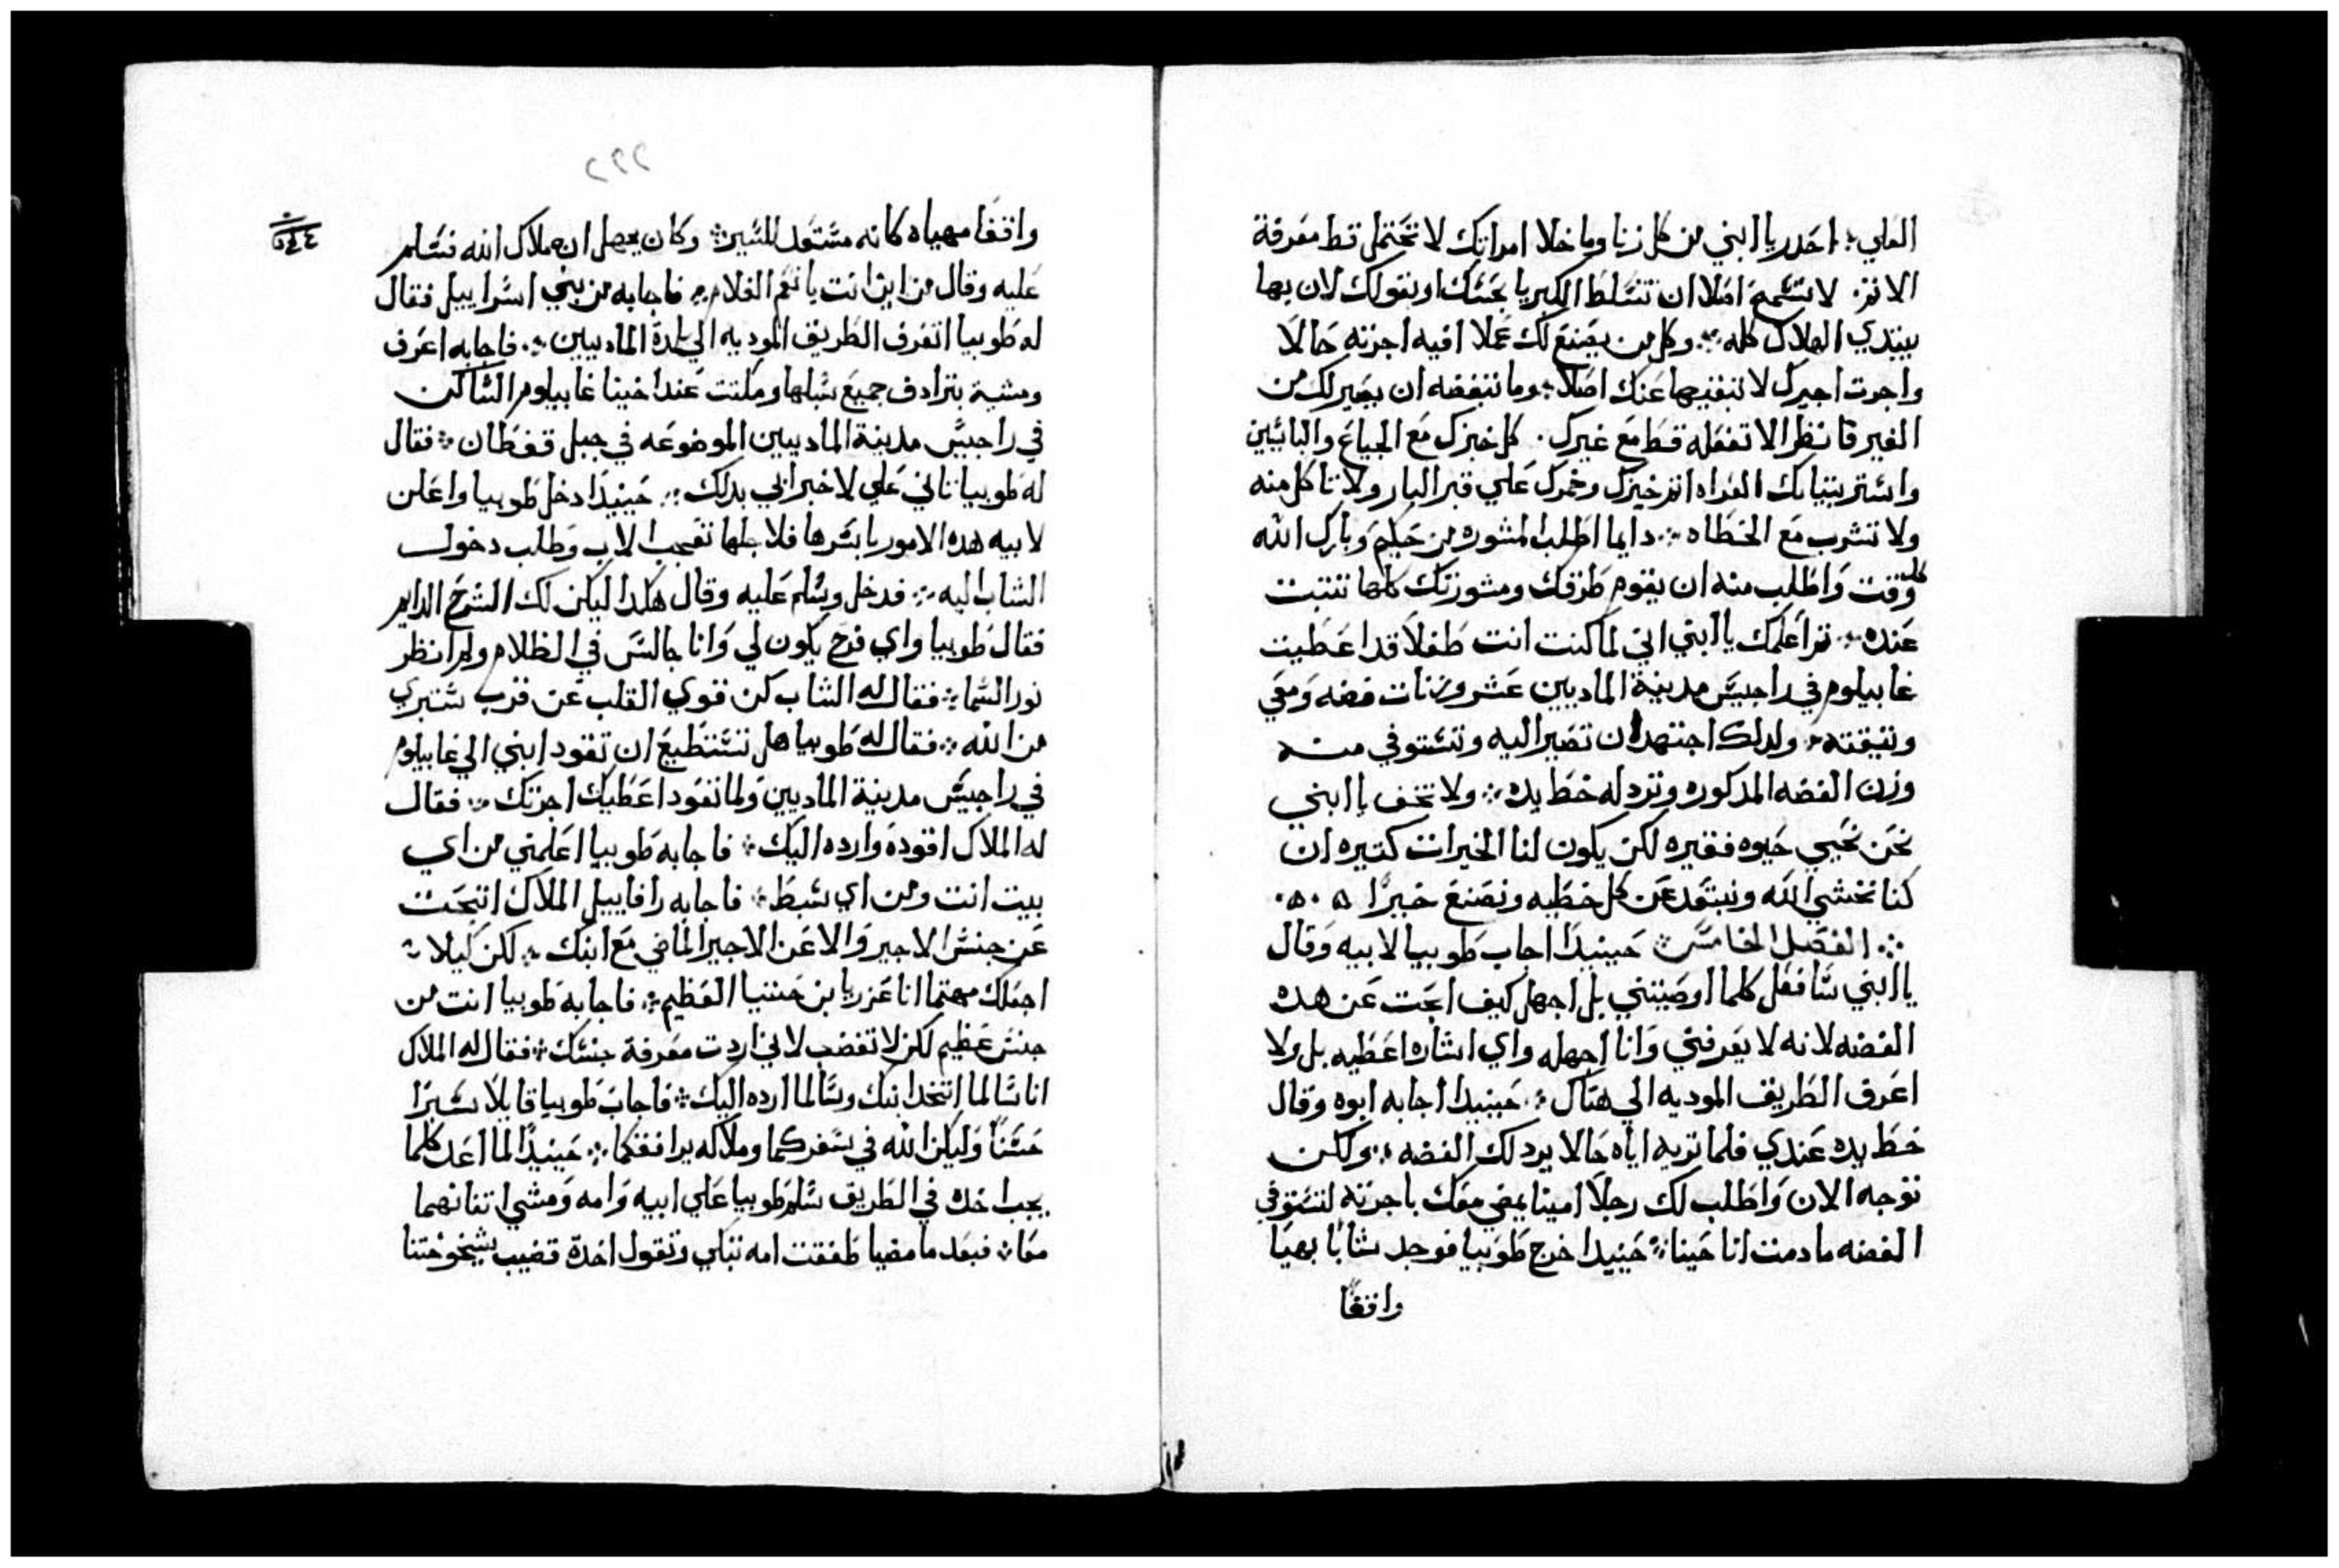 العلي ؛ احدر يا ابني من كل زنا وما خلا امراتك لا تحتمل قط معرفة
الاثم . لا تسمح اصلا ان تتسلط الكبريا بحسك او بقولك لان بها
يبتدي الهلاك كله ؛ وكل من يصنع لك عملا افيه اجرته حالا
واجرت اجيرك لا تبقيها عندك اصلا ؛ وما تبغضه ان يصير لك من
الغير فانظر الا تفعله قط مع غيرك . كل خبزك مع الجياع والبايسين
واستر بتيابك العراه اتم خبزك وخمرك علي قبر البار ولا تاكل منه
ولا تشرب مع الخطاه ؛ دايما اطلب المشوره من حكيم وبارك الله
كل وقت واطلب منه ان يقوم طرقك ومشورتك كلها تتبت
عنده ؛ تم اعلمك يا ابني اني لما كنت انت طفلا قد اعطيت
غابيلوم في راجيس مدينة الماديين عشر وزنات فضه ومعي
وتيقته ؛ ولدلك اجتهد ان تصير اليه وتستوفي منه
وزن الفضه المدكوره وترد له خط يده ؛ ولا تخف يا ابني
نحن نحيي حيوه فقيره لكن يكون لنا الخيرات كتيره ان
كنا نخشي الله ونبتعد عن كل خطيه ونصنع خيرا ۞
؛ الفصل الخامس ؛ حينيدا اجاب طوبيا لابيه وقال
يا ابني سافعل كلما اوصيتني بل اجهل كيف ابحت عن هده
الفضه لانه لا يعرفني وانا اجهله واي اشاره اعطيه بل ولا
اعرف الطريق الموديه الي هناك ؛ حينيدا اجابه ابوه وقال
خط يده عندي فلما تريه اياه حالا يرد لك الفضه ؛ ولكن
توجه الان واطلب لك رجلا امينا يمضي معك باجرته لتستوفي
الفضه ما دمت انا حينا ؛ حنيدا خرج طوبيا فوجد شابا بهيا
واقفا
٢٢٢
واقفا مهياه كانه مستعد للسير ؛ وكان يجهل انه ملاك الله فسلم
عليه وقال من اين انت يا نعم الغلام ؛ فاجابه من بني اسراييل فقال
له طوبيا اتعرف الطريق الموديه الي بلدة الماديين ؛ فاجابه اعرف
ومشية بترادف جميع سبلها ومكتت عند اخينا غابيلوم الساكن
في راجيس مدينة الماديين الموضوعه في جبل قفطان ؛ فقال
له طوبيا تاني علي لاخبر ابي بدلك ؛ حينيدا دخل طوبيا واعلن
لابيه هده الامور باسرها فلاجلها تعجب الاب وطلب دخول
الشاب اليه ؛ فدخل وسلم عليه وقال هكدا ليكن لك الفرح الدايم
فقال طوبيا واي فرح يكون لي وانا جالس في الظلام ولم انظر
نور السما ؛ فقال له الشاب كن قوي القلب عن قرب ستبري
من الله ؛ فقال له طوبيا هل تستطيع ان تقود ابني الي غابيلوم
في راجيس مدينة الماديين ولما تعود اعطيك اجرتك ؛ فقال
له الملاك اقوده وارده اليك ؛ فاجابه طوبيا اعلمني من اي
بيت انت ومن اي سبط ؛ فاجابه رافاييل الملاك اتبحت
عن جنس الاجير والا عن الاجير الماضي مع ابنك ؛ لكن كيلا
اجعلك مهتما انا عزريا بن حننيا العظيم ؛ فاجابه طوبيا انت من
جنس عظيم لكن لا تغضب لاني اردت معرفة جنسك ؛ فقال له الملاك
انا سالما اتخد ابنك وسالما ارده اليك ؛ فاجاب طوبيا قايلا سيرا
حسنا وليكن الله في سفركما وملاكه يرافقكما ؛ حينيدا لما اعد كلما
يجب اخده في الطريق سلم طوبيا علي ابيه وامه ومشي اتنانهما
معا ؛ فبعد ما مضيا طفقت امه تبكي وتقول اخدة قضيب شيخوختنا